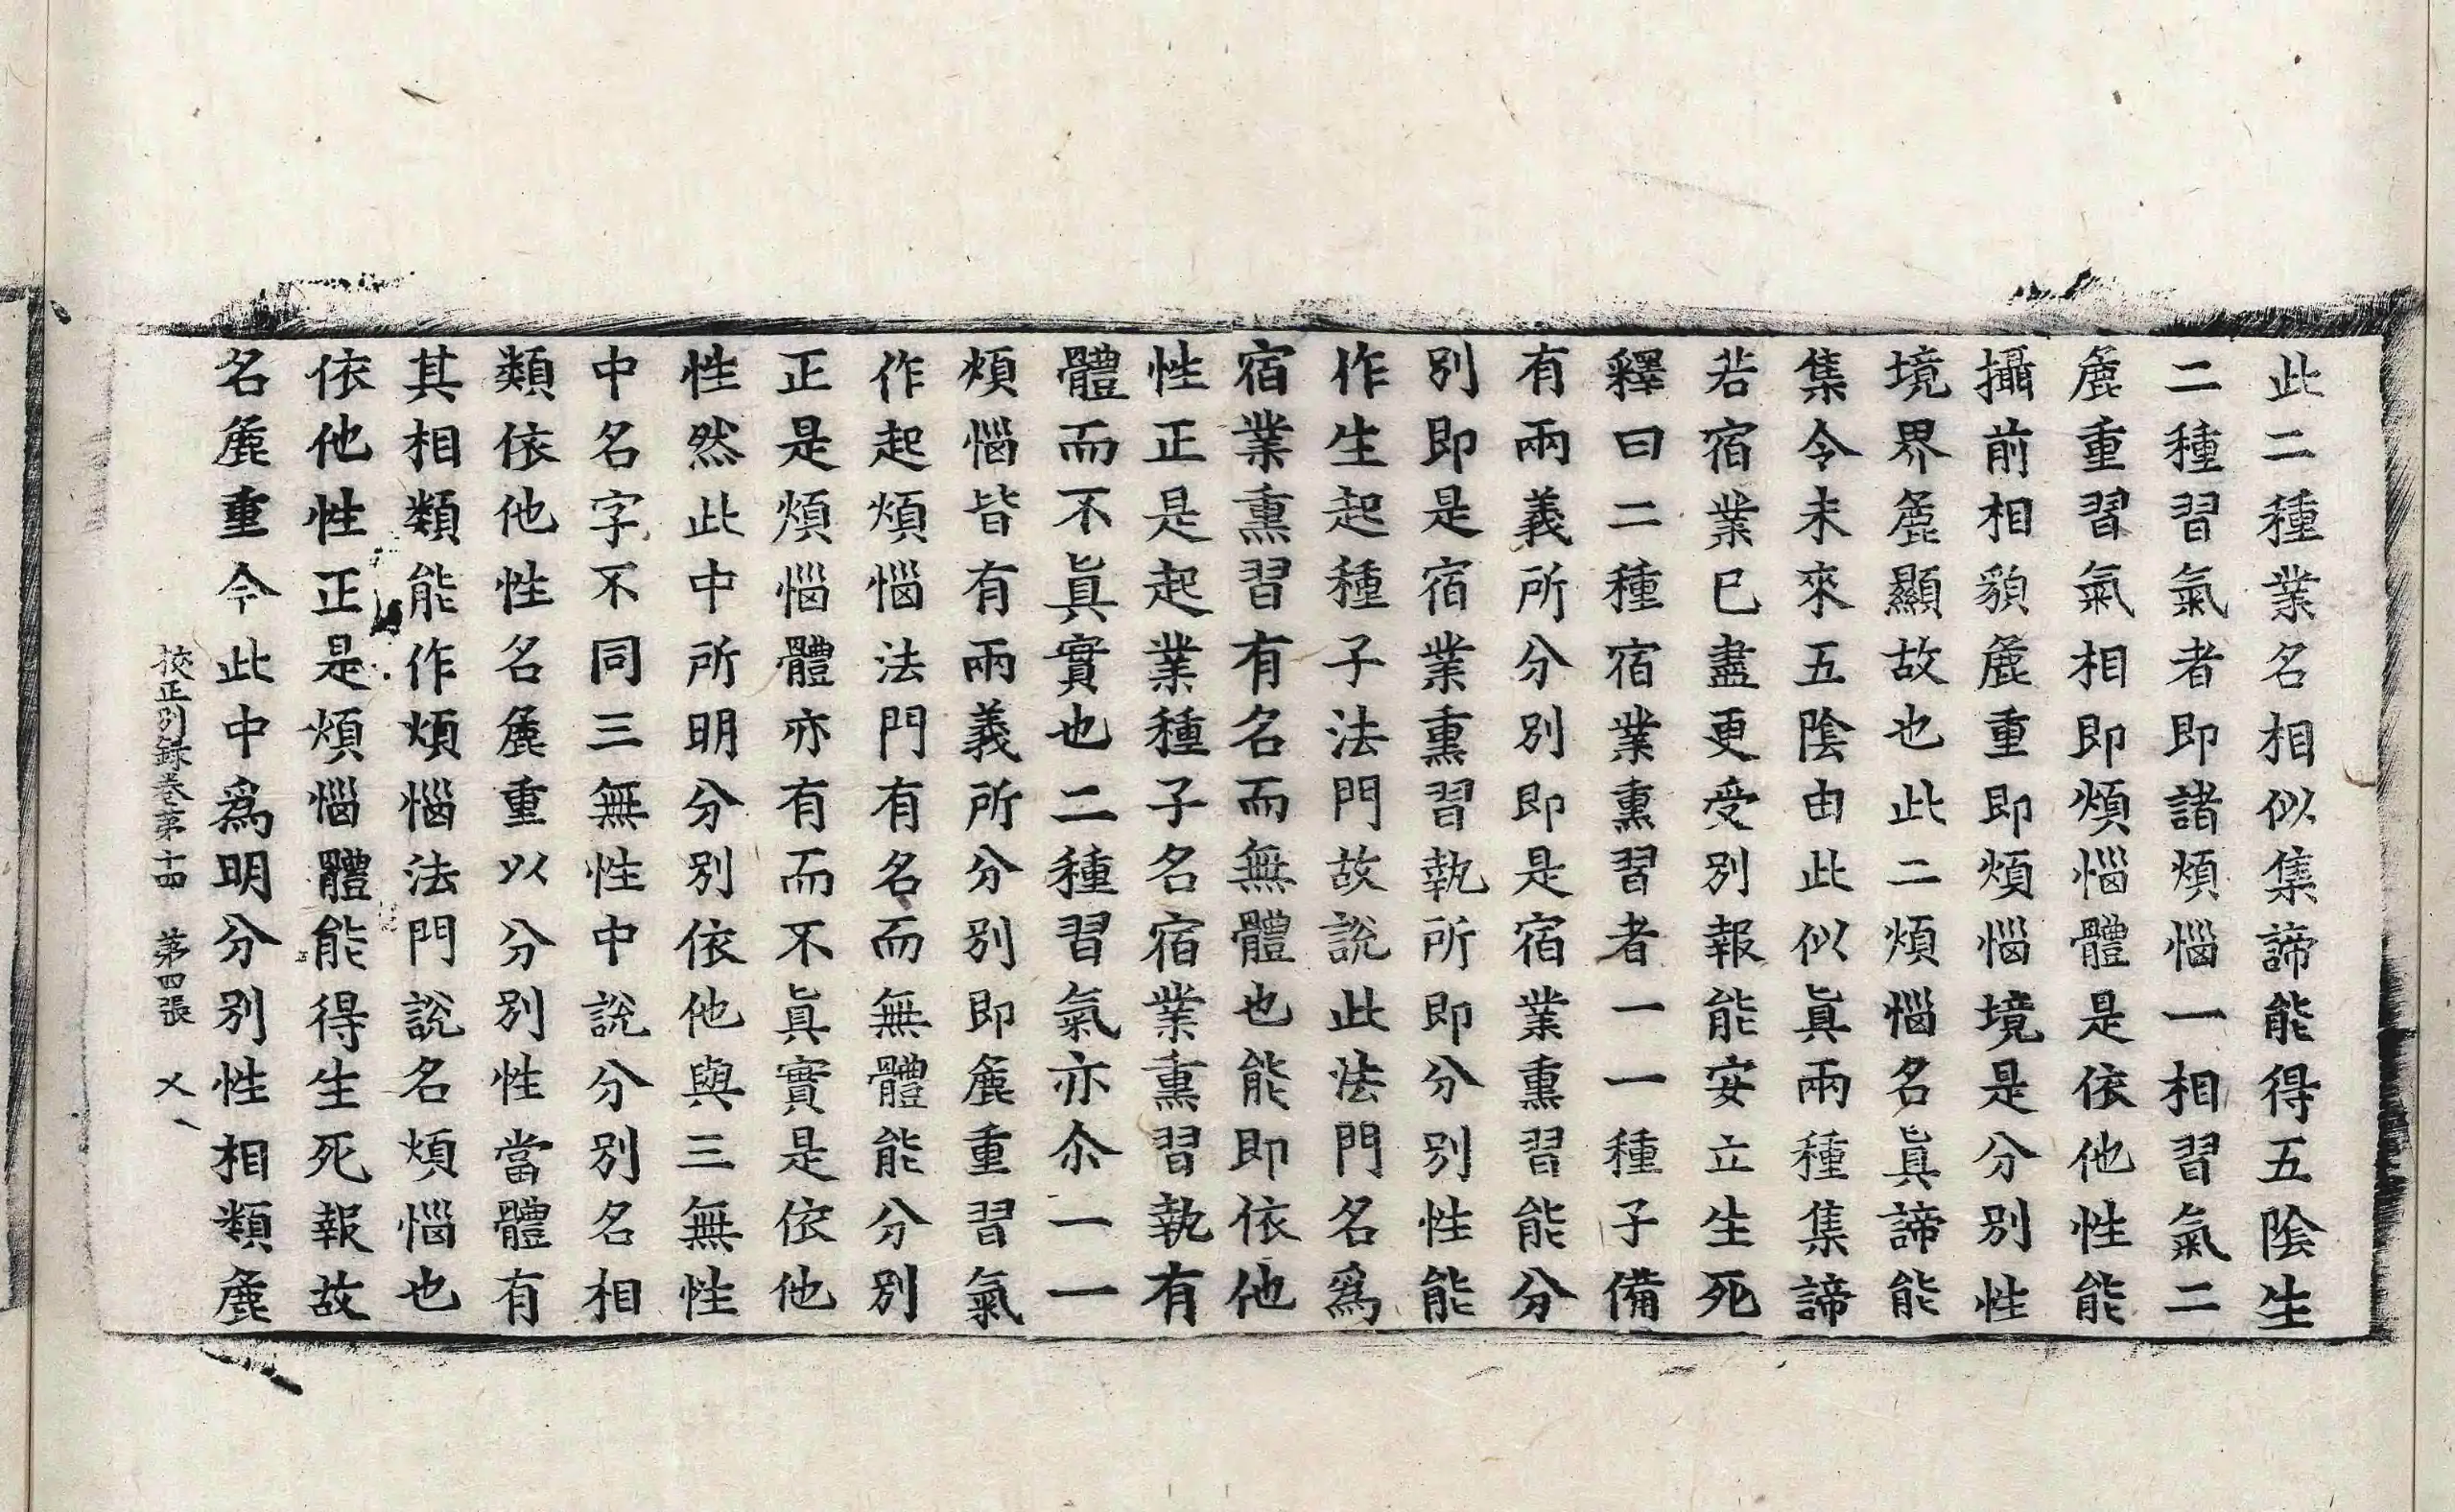 此二種業名相似集諦能得五陰生
二種習氣者即諸煩惱一相習氣二
麁重習氣相即煩惱體是依他性能
攝前相貌麁重即煩惱境是分別性
境界麁顯故也此二煩惱名眞諦能
集令未來五陰由此似眞兩種集諦
若宿業已盡更受別報能安立生死
釋曰二種宿業熏習者一一種子備
有兩義所分別即是宿業熏習能分
別即是宿業熏習執所即分別性能
作生起種子法門故說此法門名爲
宿業熏習有名而無體也能即依他
性正是起業種子名宿業熏習執有
體而不眞實也二種習氣亦尒一一
煩惱皆有兩義所分別即麁重習氣
作起煩惱法門有名而無體能分別
正是煩惱體亦有而不眞實是依他
性然此中所明分別依他與三無性
中名字不同三無性中說分別名相
類依他性名麁重以分別性當體有
其相類能作煩惱法門說名煩惱也
依他性正是煩惱體能得生死報故
名麁重今此中爲明分別性相類麁
挍正別録卷第十四　第四張